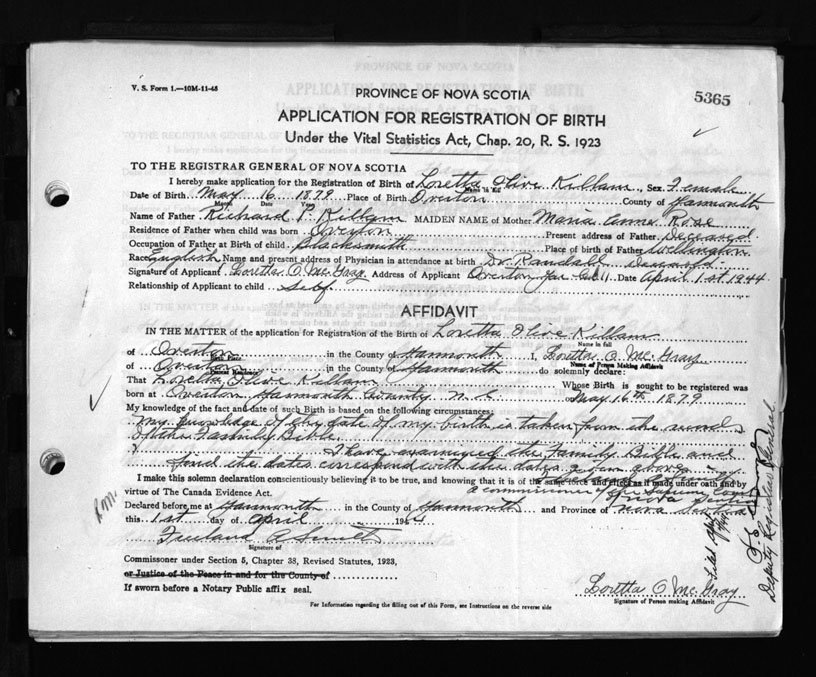 V. S. Form 1.—10M-11-43
5365
PROVINCE OF NOVA SCOTIA
APPLICATION FOR REGISTRATION OF BIRTH
Under the Vital Statistics Act, Chap. 20, R. S. 1923
TO THE REGISTRAR GENERAL OF NOVA SCOTIA
I hereby make application for the Registration of Birth of Loretta Olive Killam, Sex Female
Date of Birth May 16 1879 Place of Birth Overton County of Yarmouth
Month Date Year
Name of Father Richard Killam MAIDEN NAME of Mother Maria Anne Rose
Residence of Father when child was born Overton Present address of Father Deceased
Occupation of Father at Birth of child Blacksmith Place of birth of Father Wellington
Race English Name and present address of Physician in attendance at birth Dr Randall Deceased
Signature of Applicant Loretta O. McGray Address of Applicant Overton Yar. Co. Date April 1st 1944
Relationship of Applicant to child self
AFFIDAVIT
IN THE MATTER of the application for Registration of the Birth of Loretta Olive Killam
Name in full
of Overton in the County of Yarmouth I, Loretta O McGray
Birth Place Name of Person Making Affidavit
of Overton in the County of Yarmouth do solemnly declare:
Present Residence
That Loretta Olive Killam Whose Birth is sought to be registered was
born at Overton Yarmouth County N. S. May 16th 1879
My knowledge of the fact and date of such Birth is based on the following circumstances:
My knowledge of the date of my birth is taken from the records
of the Family Bible.
I have examined the Family Bible and
find the dates correspond with the dates given above
I make this solemn declaration conscientiously believing it to be true, and knowing that it is of the same force and effect as if made under oath and by
virtue of The Canada Evidence Act. a commissioner of the Supreme Court
Declared before me at Yarmouth in the County of Yarmouth and Province of Nova Scotia
this 1st day of April 1944
Signature of
Commissioner under Section 5, Chapter 38, Revised Statutes, 1923,
or Justice of the Peace in and for the County of
If sworn before a Notary Public affix seal.
Loretta O McGray
Signature of Person making Affidavit
For Information regarding the filling out of this Form, see Instructions on the reverse side
Deputy Registrar General